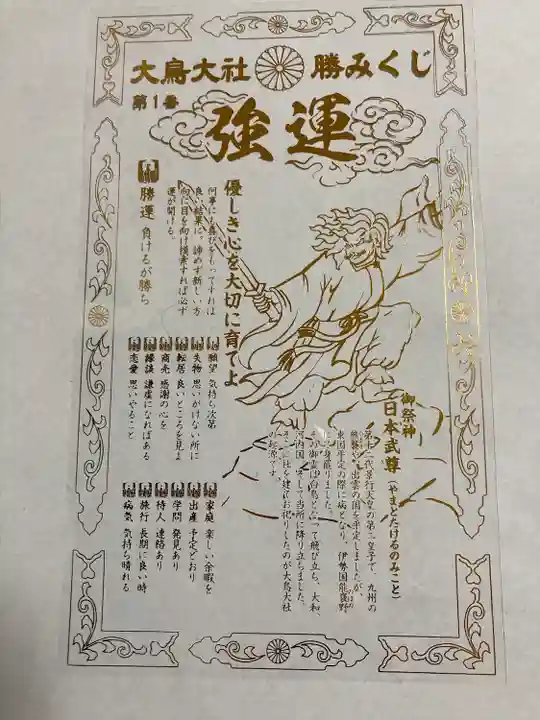 大鳥大社 勝みくじ
第1番
強運
優しき心を大切に育てよ
何事にも喜びをもってすれば
良い結果に。諦めず新しい方
向に目を向け模索すれば必ず
運が開ける。
勝運 負けるが勝ち
願望 気持ち次第
失物 思いがけない所に
転居 良いところを見よ
商売 感謝の心を
縁談 謙虚になればある
恋愛 思いやること
御祭神
日本武尊(やまとたけるのみこと)
第十二代景行天皇の第二皇子で、九州の
熊襲や、出雲の国を平定しましたが、
東国平定の際に病となり、伊勢国能褒野
のぼの
で身罷りました。
その御霊は白鳥となって飛び立ち、大和、
河内国、そして当所に降り立ちました。
そこに社を建てお祀りしたのが大鳥大社
の起源です。
家庭 楽しい余暇を
出産 予定どおり
学問 発見あり
待人 連絡あり
旅行 長期に良い時
病気 気持ち晴れる